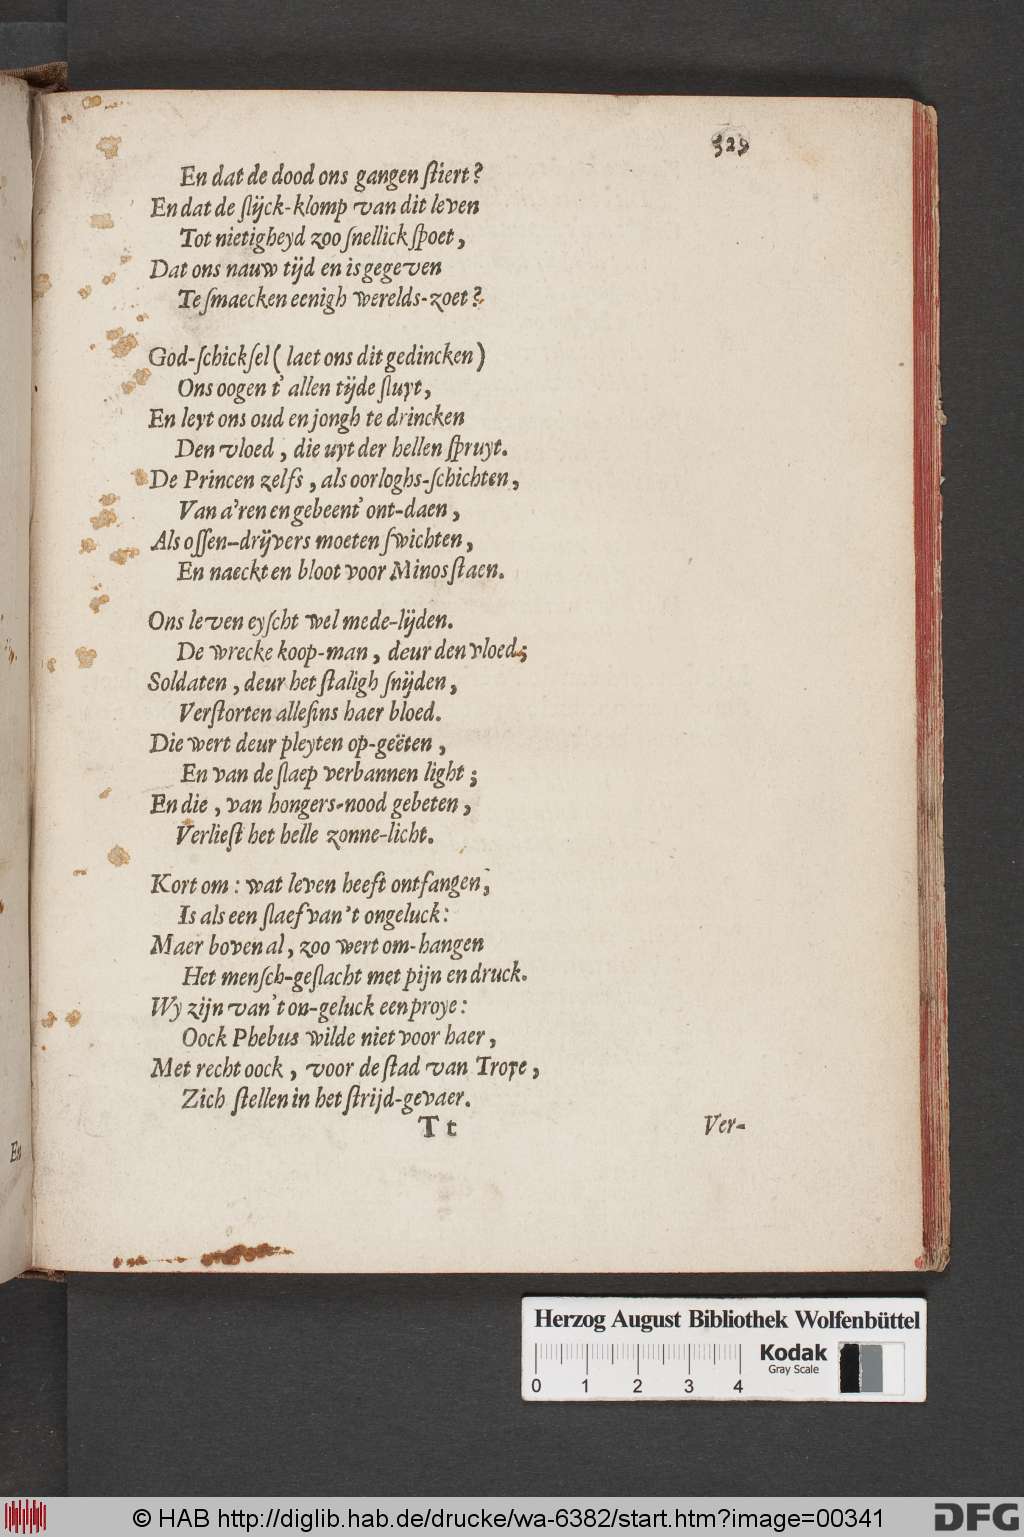 329
En dat de dood ons gangen ſtiert?
En dat de ſlijck-klomp van dit leven
Tot nietigheyd zoo ſnellick ſpoet,
Dat ons nauw tijd en is gegeven
Te ſmaecken eenigh werelds-zoet?
God-ſchickſel (laet ons dit gedincken)
Ons oogen t' allen tijde ſluyt,
En leyt ons oud en jongh te drincken
Den vloed, die uyt der hellen ſpruyt.
De Princen zelfs, als oorloghs-ſchichten,
Van a'ren en gebeent' ont-daen,
Als oſſen-drijvers moeten ſwichten,
En naeckt en bloot voor Minos ſtaen.
Ons leven eyſcht wel mede-lijden.
De wrecke koop-man, deur den vloed;
Soldaten, deur het ſtaligh ſnijden,
Verſtorten alleſins haer bloed.
Die wert deur pleyten op-geëten,
En van de ſlaep verbannen light;
En die, van hongers-nood gebeten,
Verlieſt het helle zonne-licht.
Kort om: wat leven heeft ontfangen,
Is als een ſlaef van't ongeluck:
Maer boven al, zoo wert om-hangen
Het menſch-geſlacht met pijn en druck.
Wy zijn van't on-geluck een proye:
Oock Phebus wilde niet voor haer,
Met recht oock, voor de ſtad van Troye,
Zich ſtellen in het ſtrijd-gevaer.
T t
Ver-
En
Herzog August Bibliothek Wolfenbüttel
Kodak
Gray Scale
0 1 2 3 4
© HAB http://diglib.hab.de/drucke/wa-6382/start.htm?image=00341
DFG